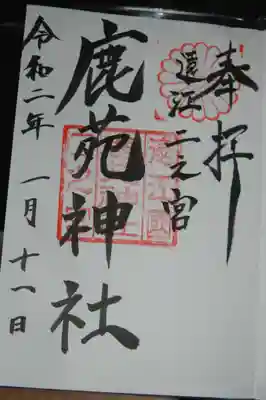 奉拝
遠江二之宮
鹿苑神社
令和二年 一月 十一日